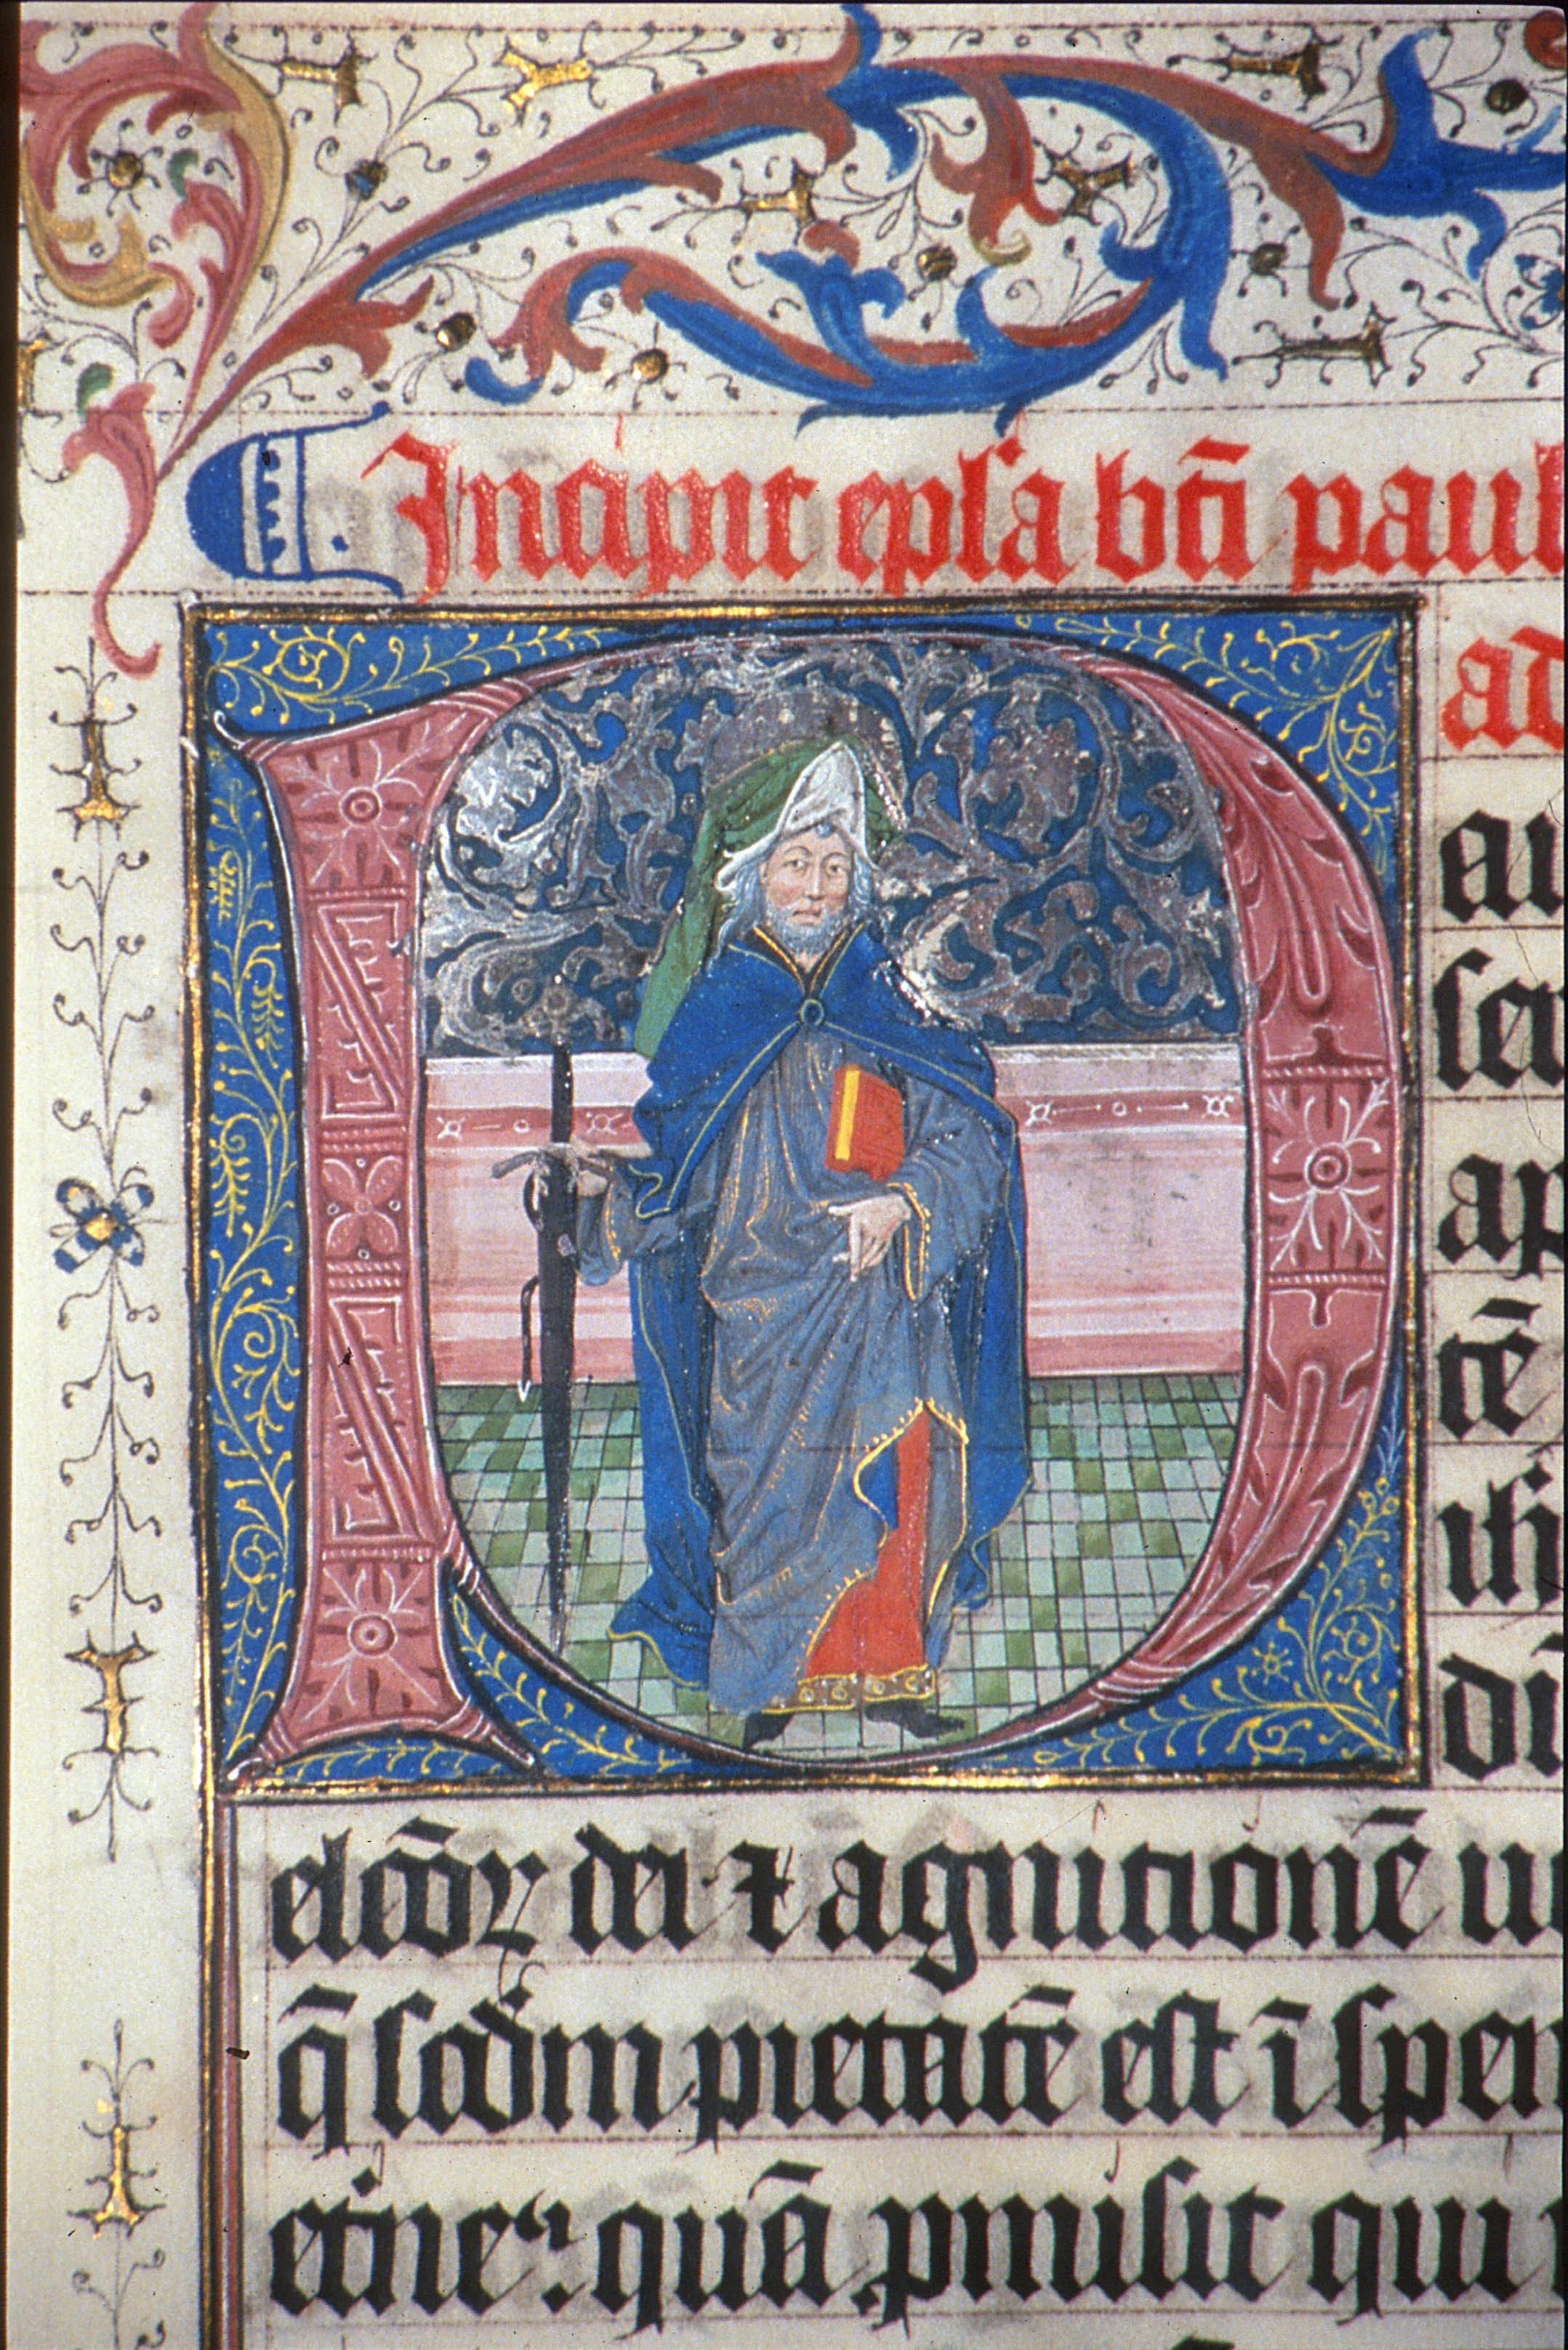 Incipit ep̄la bt̄i paul
ad
P au
ser
ap
tē
uſi
di
electoꝝ dei · ⁊ agnitionē u
q̄ ſcd̓m pietatē eſt ī ſpem
etⁿe : quā ꝓmiſit qui